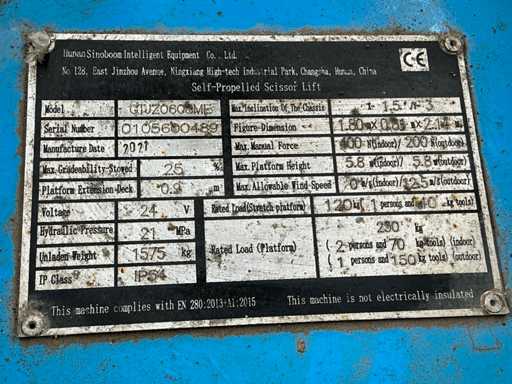 Hunan Sinoboom Intelligent Equipment Co., Ltd.
No.128, East Jinzhou Avenue, Ningxiang High-tech Industrial Park, Changsha, Hunan, China
CE
Self-Propelled Scissor Lift
Model GTJZ0608ME Max.Inclination Of The Chassis X- 1.5°/Y- 3°
Serial Number 0105600489 Figure-Dimension
Manufacture Date 2021 Max. Manual Force 400 N(indoor)/ 200 N(outdoor)
Max.Gradeability-Stowed 25 % Max.Platform Height 5.8 m(indoor)/ 5.8 m(outdoor)
Platform Extension-Deck 0.9 m Max. Allowable Wind-Speed 0 m/s(indoor)/ 12.5 m/s(outdoor)
Voltage 24 V Rated Load(Stretch platform) 120 kg( 1 persons and 40 kg tools)
Hydraulic Pressure 21 MPa Rated Load (Platform) 230 kg
Unladen Weight 1575 kg ( 2 persons and 70 kg tools) (indoor)
IP Class IP54 ( 1 persons and 150 kg tools) (outdoor)
This machine complies with EN 280:2013+A1:2015 This machine is not electrically insulated